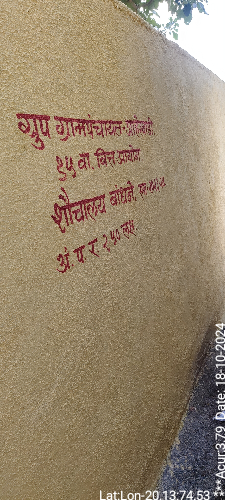 ग्रुप ग्रामपंचायत
१५ वा. वित्त आयोग
शौचालय बांधणे,
अं. प. र. २.५० लक्ष.
Lat:Lon-20.13:74.53
***Acur:3.79 Date: 18-10-2024